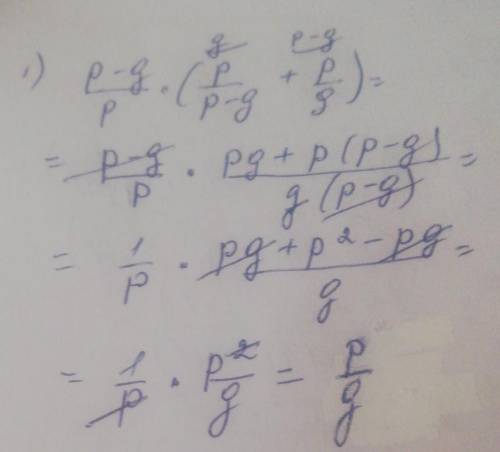 1) (p-g)/p · (p/(p-g) [g] + p/g [p-g]) =
= (p-g)/p · (pg + p(p-g))/(g(p-g)) =
= 1/p · (pg + p² - pg)/g =
= 1/p · p²/g = p/g